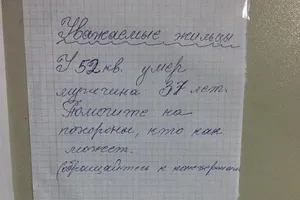 Уважаемые жильцы
У 52 кв. умер
мужчина 37 лет.
Помогите на
похороны, кто как
может.
(обращайтесь к консьержам